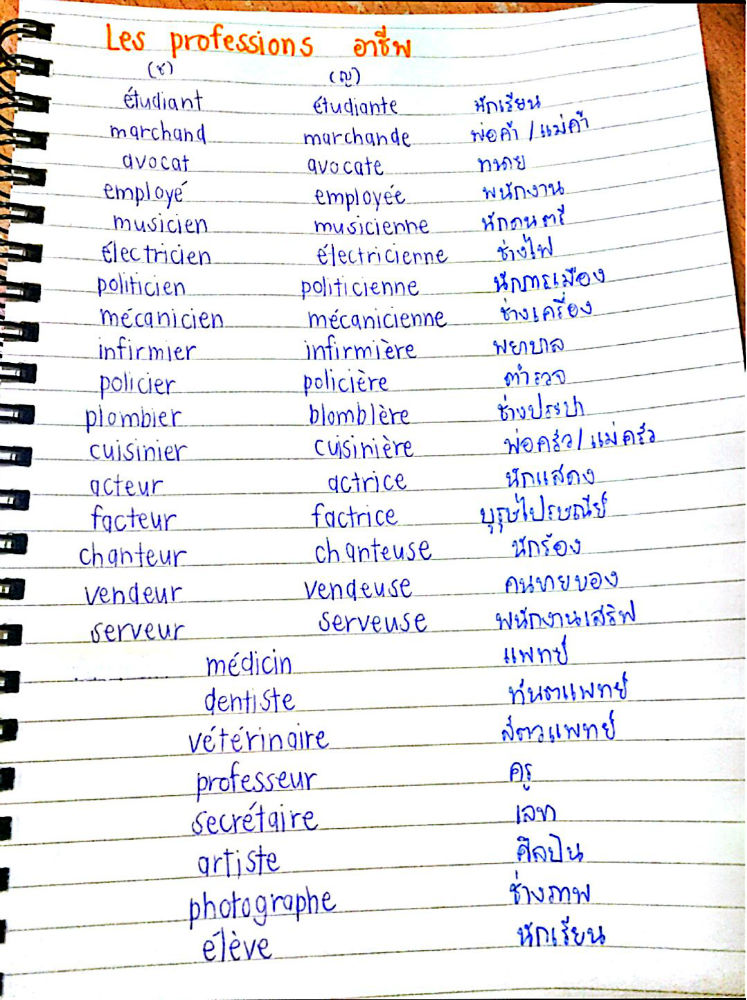 Les professions อาชีพ
(ช) (ญ)
étudiant étudiante นักเรียน
marchand marchande พ่อค้า / แม่ค้า
avocat avocate ทนาย
employé employée พนักงาน
musicien musicienne นักดนตรี
électricien électricienne ช่างไฟ
politicien politicienne นักการเมือง
mécanicien mécanicienne ช่างเครื่อง
infirmier infirmière พยาบาล
policier policière ตำรวจ
plombier blomblère ช่างประปา
cuisinier cuisinière พ่อครัว / แม่ครัว
acteur actrice นักแสดง
facteur factrice บุรุษไปรษณีย์
chanteur chanteuse นักร้อง
vendeur vendeuse คนขายของ
serveur serveuse พนักงานเสริฟ
médicin แพทย์
dentiste ทันตแพทย์
vétérinaire สัตวแพทย์
professeur ครู
secrétaire เลขา
artiste ศิลปิน
photographe ช่างภาพ
élève นักเรียน